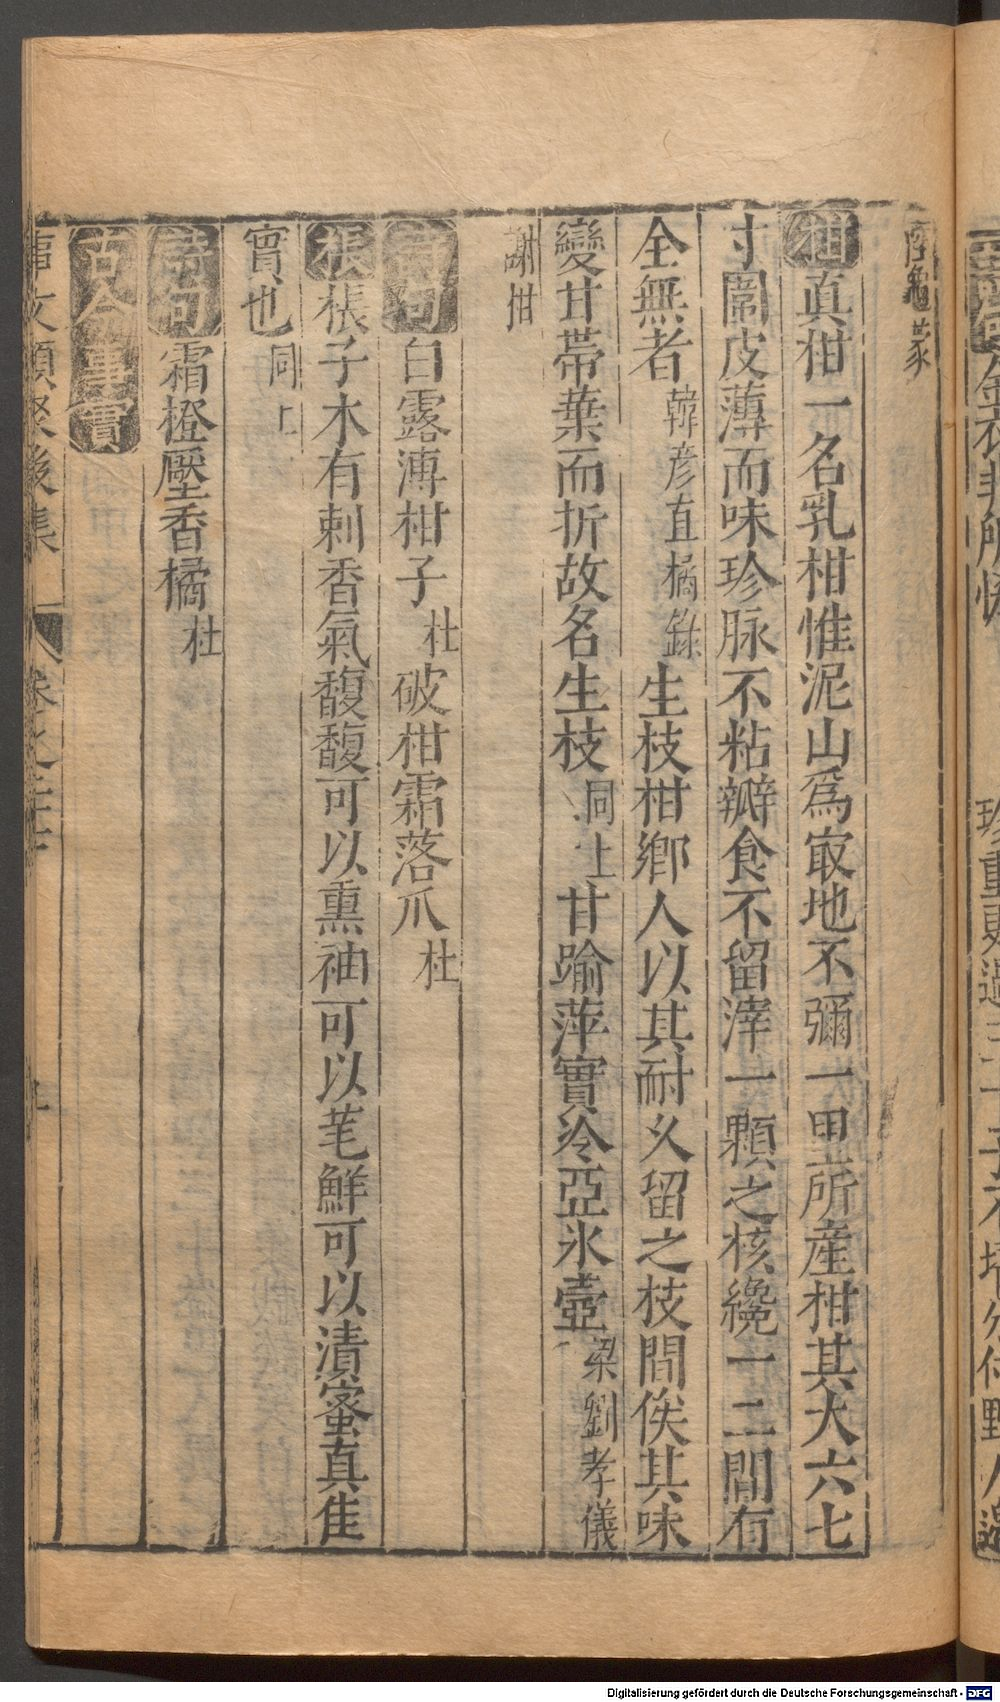 陸龜蒙
柑真柑一名乳柑惟泥山爲㝡地不彌一里所産柑其大六七
寸圍皮薄而味珍脉不粘瓣食不留滓一顆之核纔一二間有
全無者韓彦直橘錄生枝柑鄉人以其耐久留之枝間俟其味
變甘帶葉而折故名生枝同上甘踰萍實冷亞氷壺梁劉孝儀
謝柑
詩句白露溥柑子杜破柑霜落爪杜
棖棖子木有刺香氣馥馥可以熏袖可以芼鮮可以漬蜜真佳
實也同上
詩句霜橙壓香橘杜
古今事實
事文類聚後集
卷之二十七
Digitalisierung gefördert durch die Deutsche Forschungsgemeinschaft - DFG